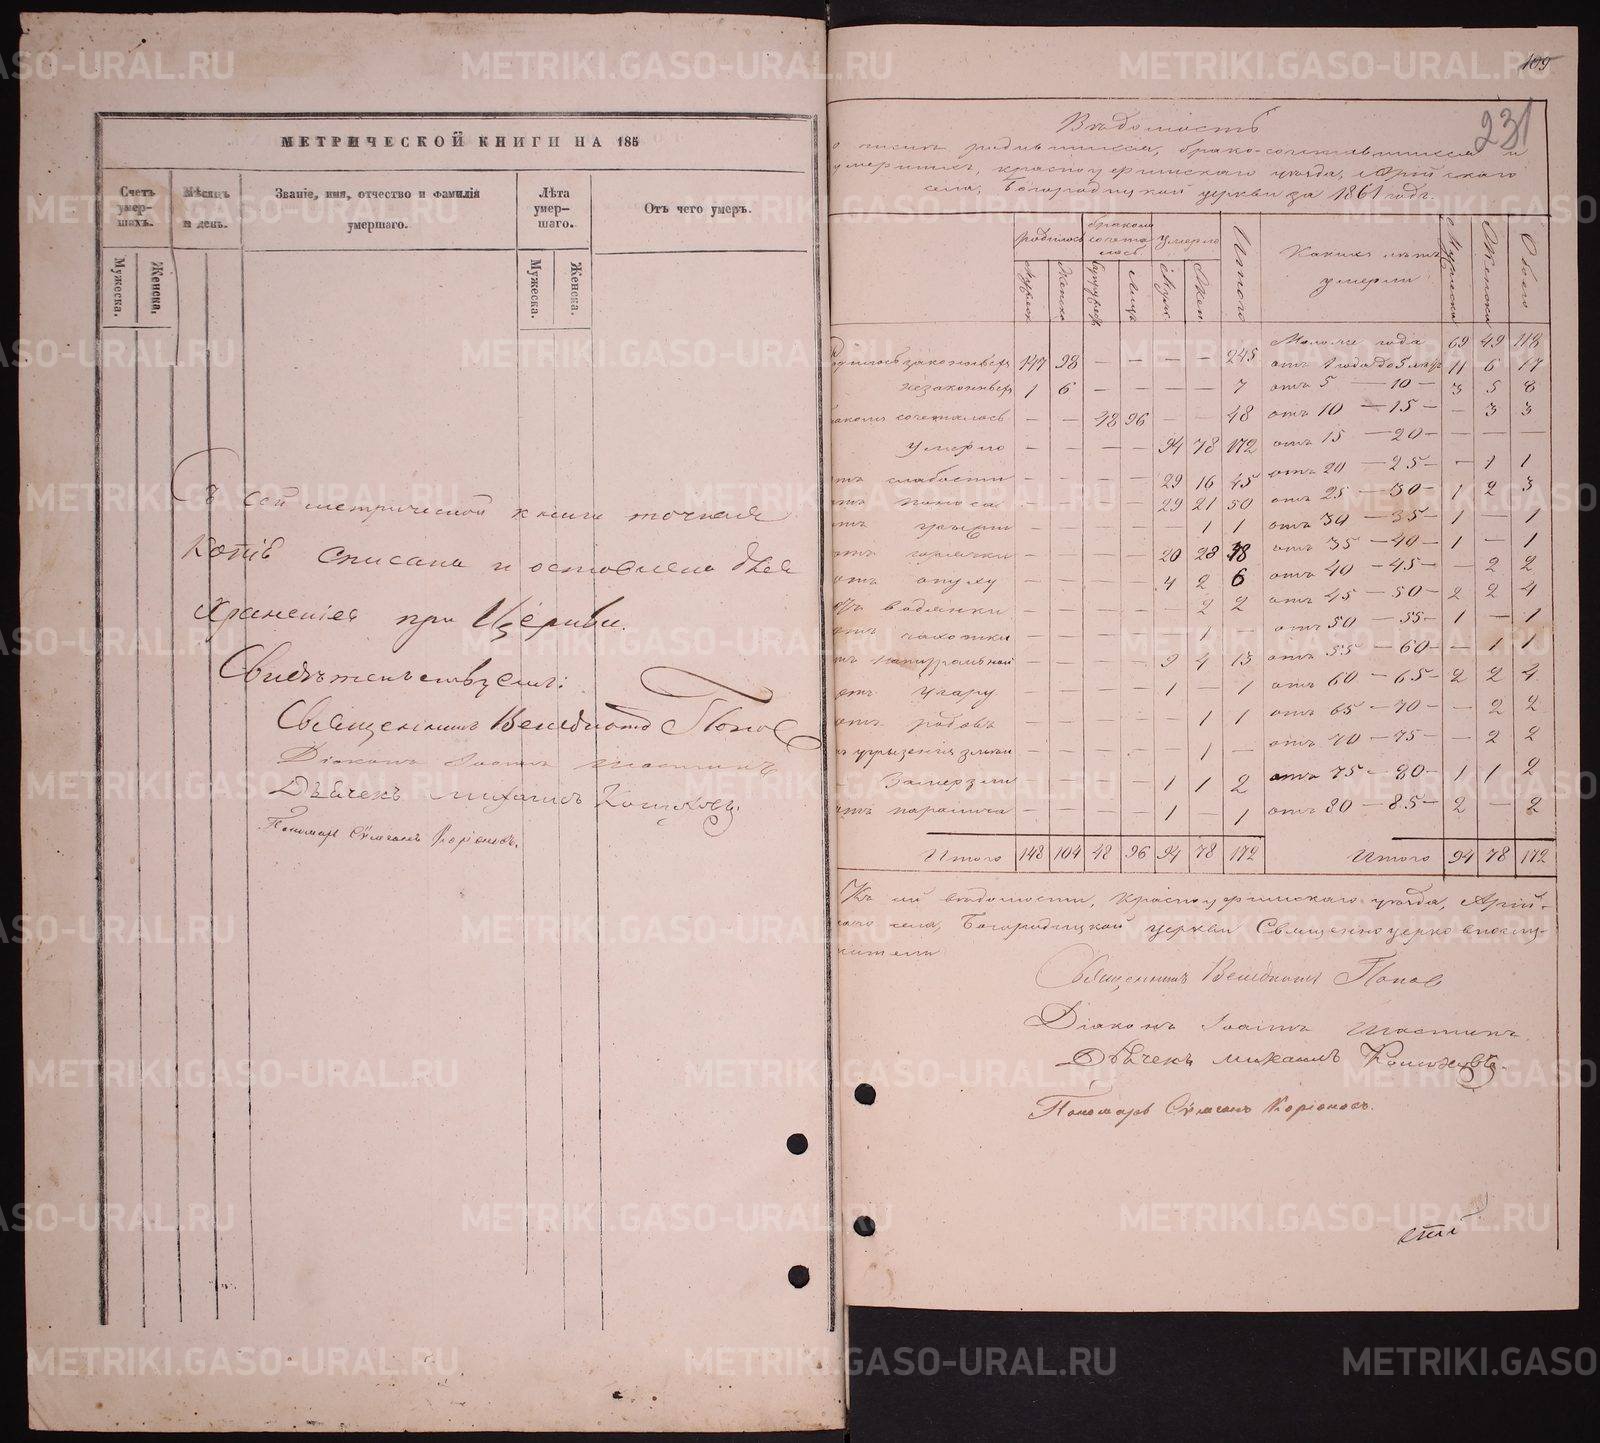 МЕТРИЧЕСКОЙ КНИГИ НА 185
Счетъ умер-шихъ.
Мужеска.
Женска.
Мѣсяцъ и день.
Званіе, имя, отчество и фамилія умершаго.
Лѣта умер-шаго.
Мужеска.
Женска.
Отъ чего умеръ.
Съ сей метрической книги точная
копія списана и оставлена для
храненія при Церкви.
Свидѣтельствуемъ:
Священникъ Венедиктъ Попов
Діаконъ Іоаннъ
Дьячекъ Михаилъ
Пономарь
109
231
Вѣдомость
о числѣ родившихся, брако-сочетавшихся и
умершихъ, красноуфимскаго уѣзда, Арійскаго
села, Богородицкой церкви за 1861 годъ.
родилось
бракомъ сочеталось
умерло
Итого
Какихъ лѣтъ умерли
Мужеска
Женска
Обоего
Родилось законнорож 147 98 — — — — 245 Моложе года 69 49 118
незаконнор 1 6 — — — — 7 отъ 1 года до 5 лѣтъ 11 6 17
отъ 5 — 10 — 3 5 8
бракомъ сочеталось — — 48 96 — — 48 отъ 10 — 15 — — 3 3
Умерло — — — — 94 78 172 отъ 15 — 20 — — — —
отъ слабости — — — — 29 16 45 отъ 20 — 25 — — 1 1
отъ поноса — — — — 29 21 50 отъ 25 — 30 — 1 2 3
отъ грыжи 1 1 отъ 30 — 35 — 1 — 1
отъ горячки — — — — 20 28 48 отъ 35 — 40 — 1 — 1
отъ опуху — — — — 4 2 6 отъ 40 — 45 — — 2 2
отъ водянки — — — — — 2 2 отъ 45 — 50 — 2 2 4
отъ чахотки — — — — — 1 отъ 50 — 55 — 1 — 1
отъ натуральной — — — — 9 4 13 отъ 55 — 60 — — 1 1
отъ угару — — — — 1 — 1 отъ 60 — 65 — 2 2 4
отъ родовъ — — — — 1 1 отъ 65 — 70 — — 2 2
угрызенія змѣи — — — — — 1 — отъ 70 — 75 — — 2 2
Замерзли — — — — 1 1 2 отъ 75 — 80 — 1 1 2
отъ паралича — — — — 1 — 1 отъ 80 — 85 — 2 — 2
Итого 148 104 48 96 94 78 172 Итого 94 78 172
Къ сей вѣдомости, красноуфимскаго уѣзда, Арій-
скаго села, Богородицкой церкви Священноцерковнослу-
жители
Священникъ Венедиктъ Попов
Діаконъ Іоаннъ
Дьячекъ Михаилъ
Пономарь
METRIKI.GASO-URAL.RU